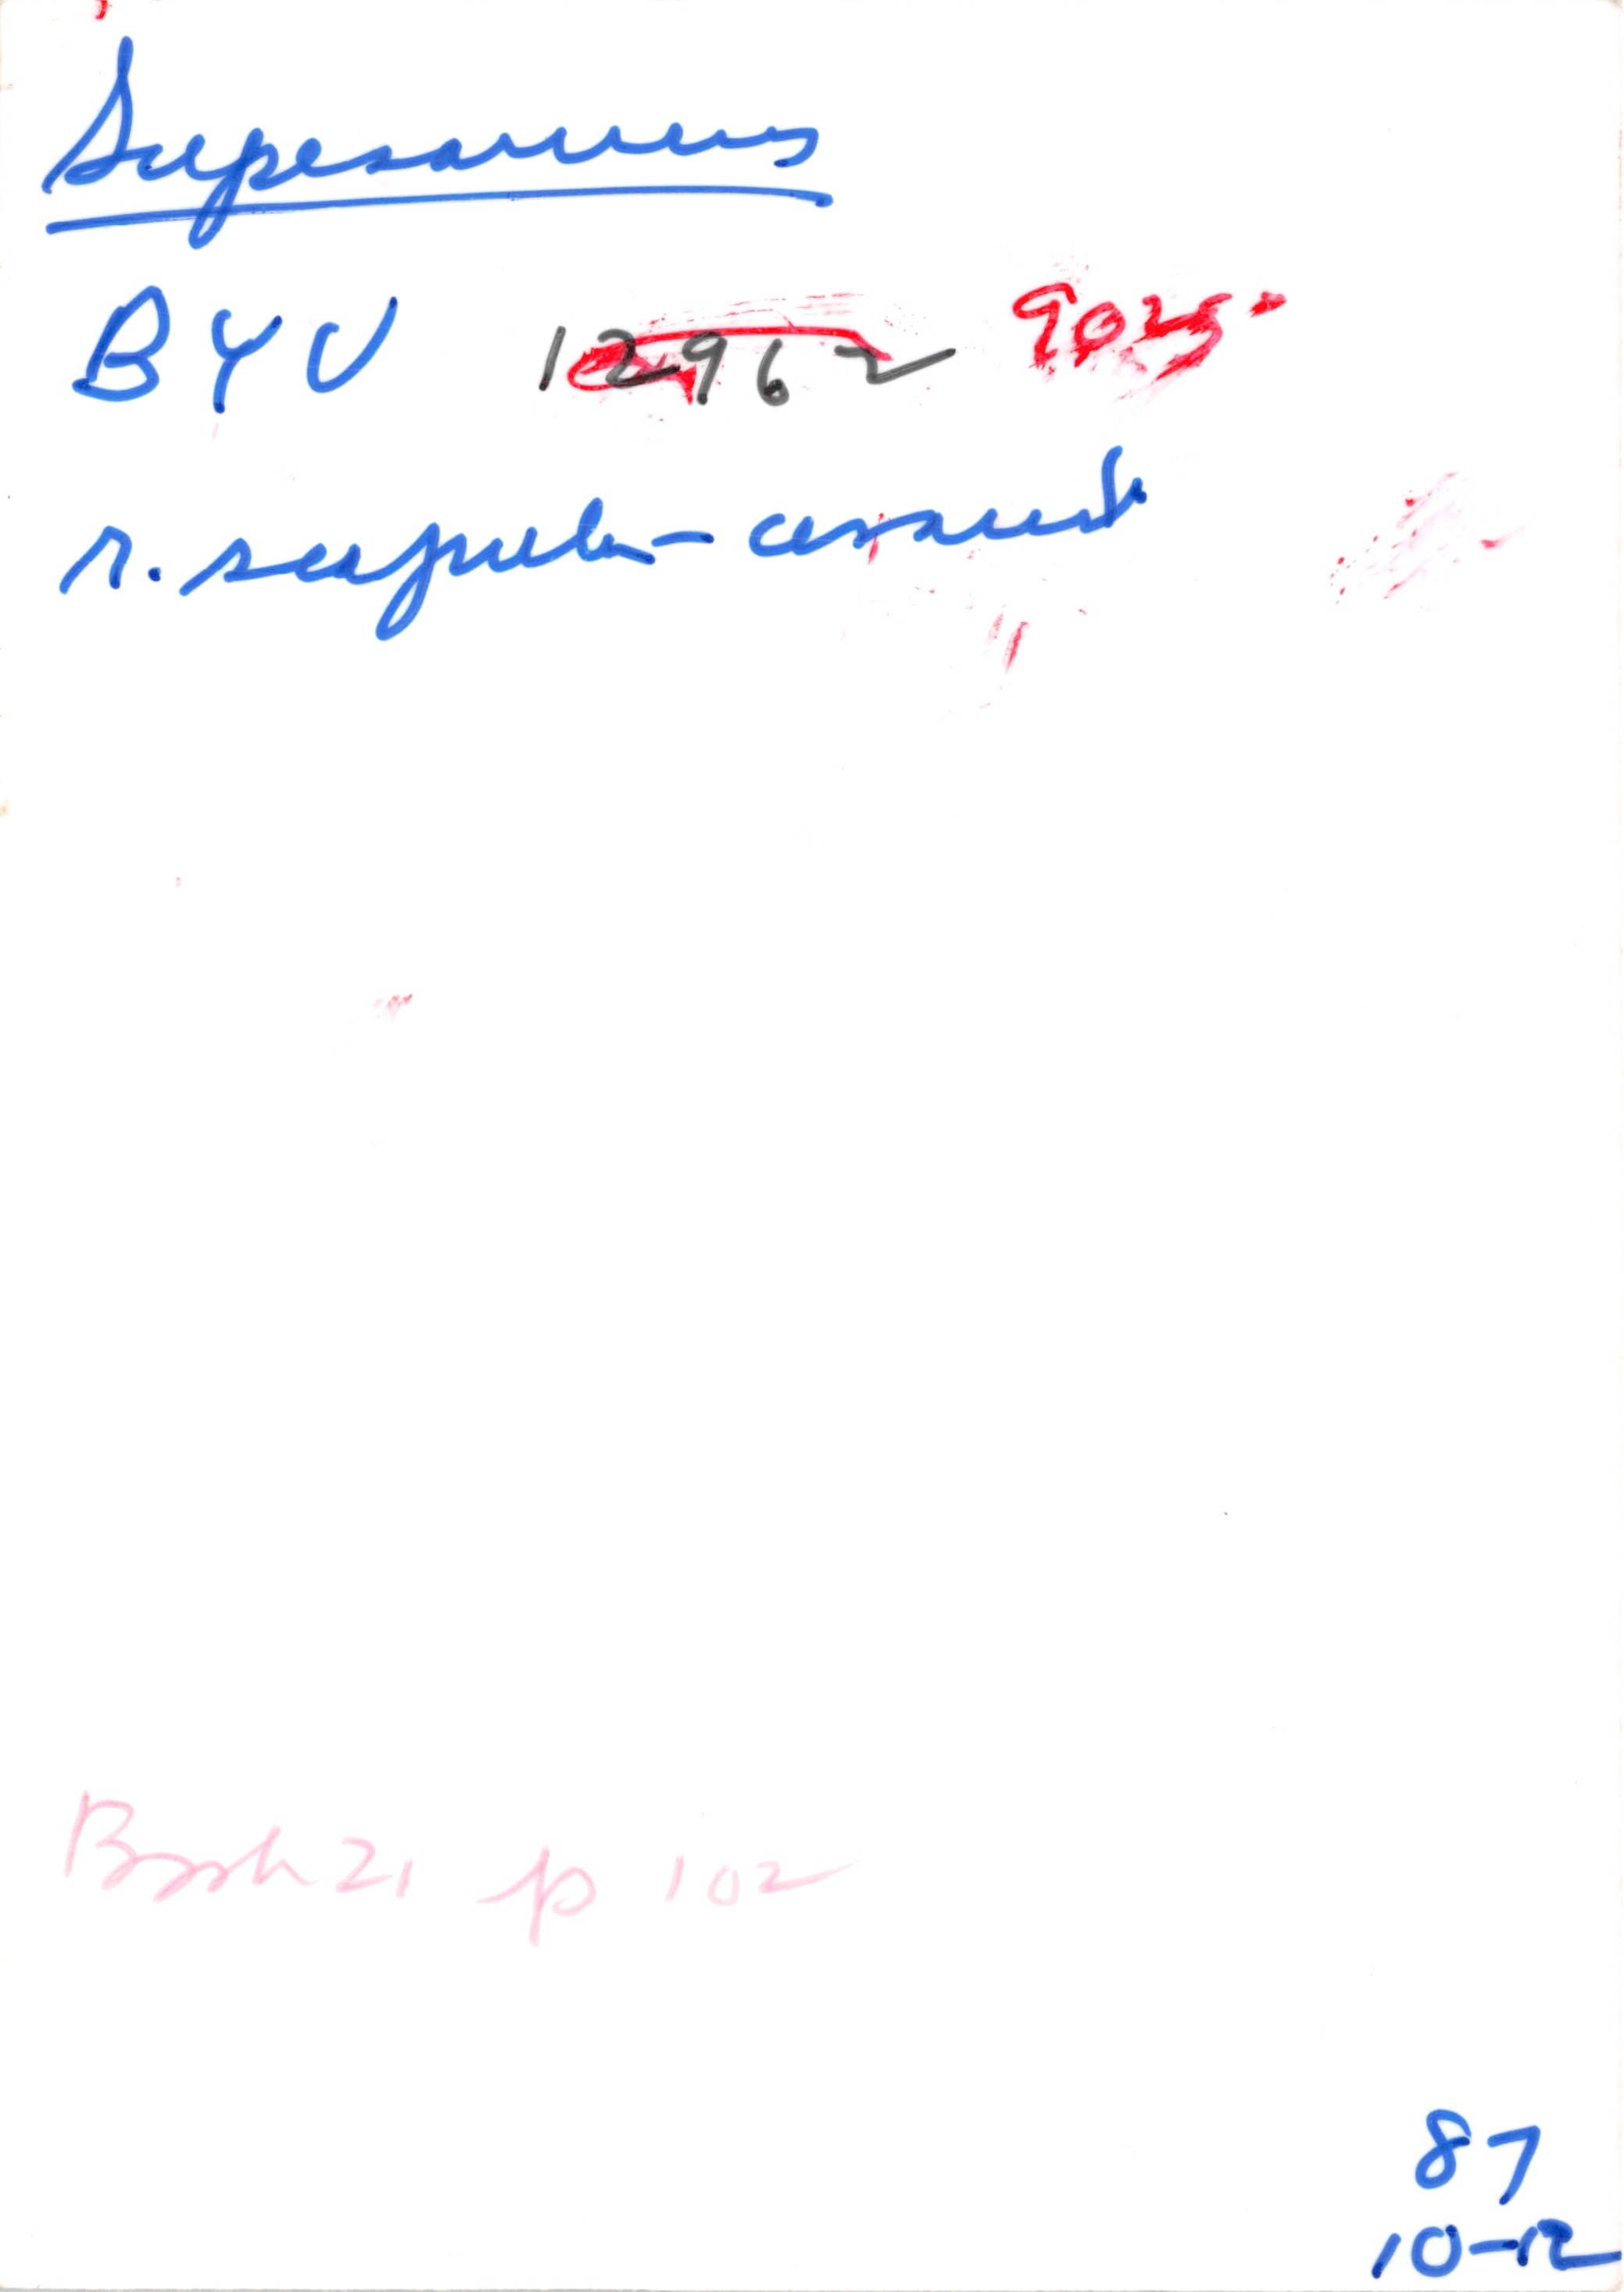 Supersaurus
BYU 12962 9025
r. scapulo-coracoid
Byrh 21 p 102
87
10-12